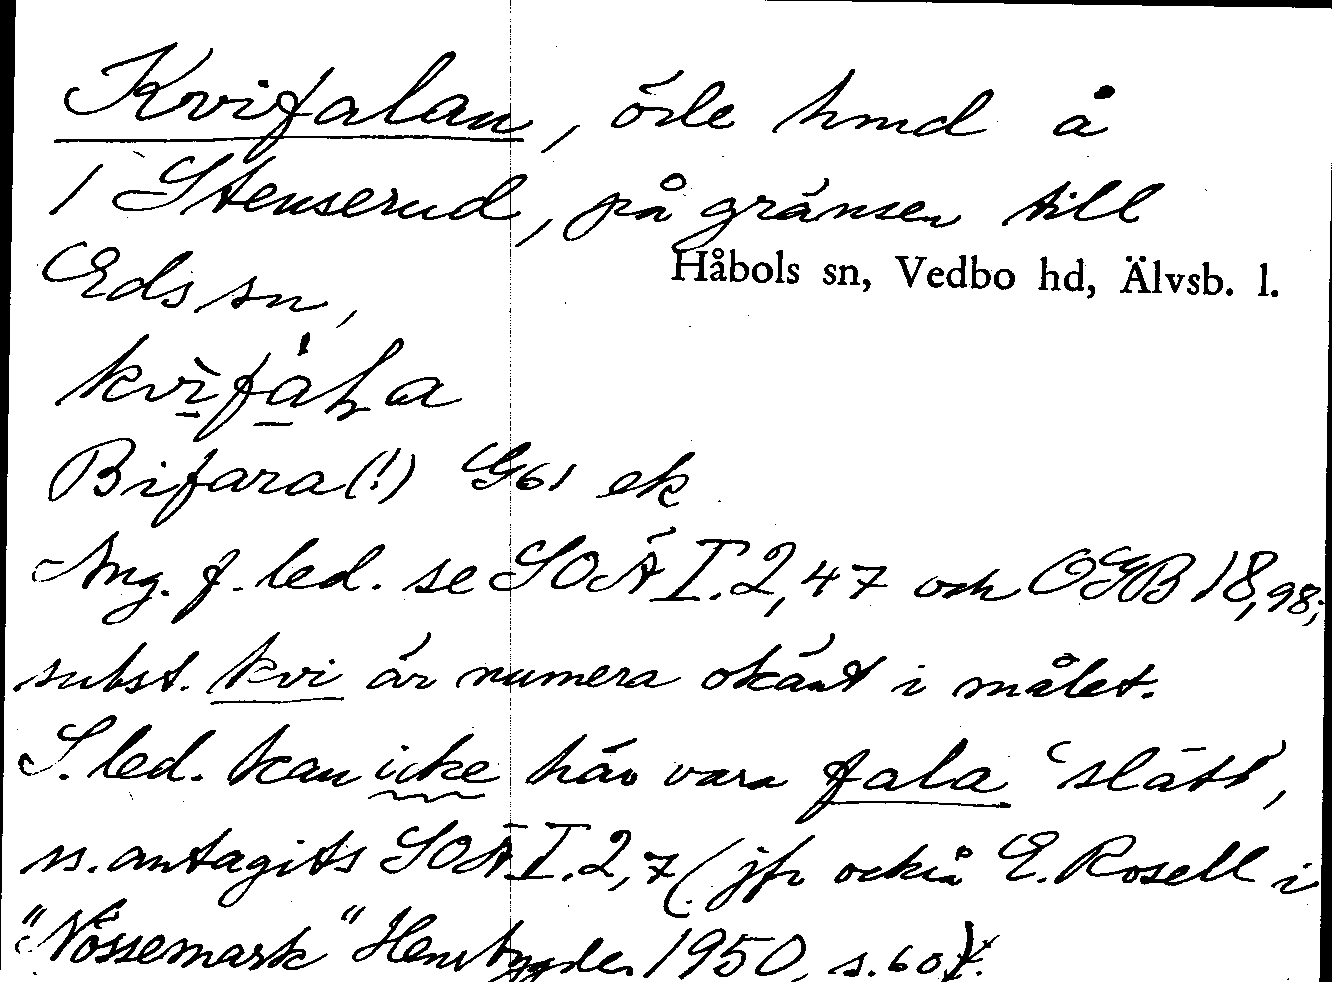 Kvifalan, öde hmd å
1 Stenserud, på gränsen till
Håbols sn, Vedbo hd, Älvsb. l.
Eds sn,
kvìfàɫa
Bifara(!) G61 ek
Ang. f. led. se SOÄ I.2,47 och OGB 18,98;
subst. kvi är numera okänt i målet.
S. led. kan icke här vara fala 'slätt',
ss. antagits SOÄ I.2,7 (jfr också E. Rosell i
"Nössemark" Hembygden 1950, s.60).